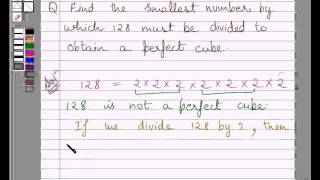 Q Find the smallest number by
which 128 must be divided to
obtain a perfect cube.
Soln 128 = 2 × 2 × 2 × 2 × 2 × 2 × 2
128 is not a perfect cube.
If we divide 128 by 2, then